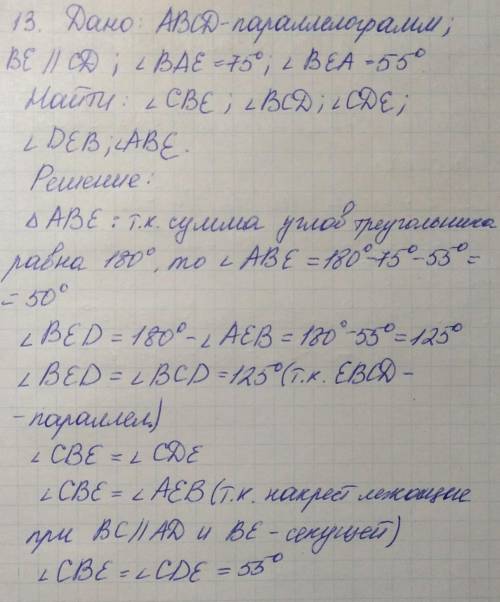 13. Дано: ABCD-параллелограмм;
BE // CD; ∠BAE =75°; ∠BEA =55°
Найти: ∠CBE; ∠BCD; ∠CDE;
∠DEB; ∠ABE.
Решение:
△ABE: т.к. сумма углов треугольника
равна 180°, то ∠ABE = 180°-75°-55°=
= 50°
∠BED = 180° - ∠AEB = 180°-55°= 125°
∠BED = ∠BCD = 125° (т.к. EBCD-
-параллел.)
∠CBE = ∠CDE
∠CBE = ∠AEB (т.к. накрест лежащие
при BC//AD и BE - секущей)
∠CBE = ∠CDE = 55°